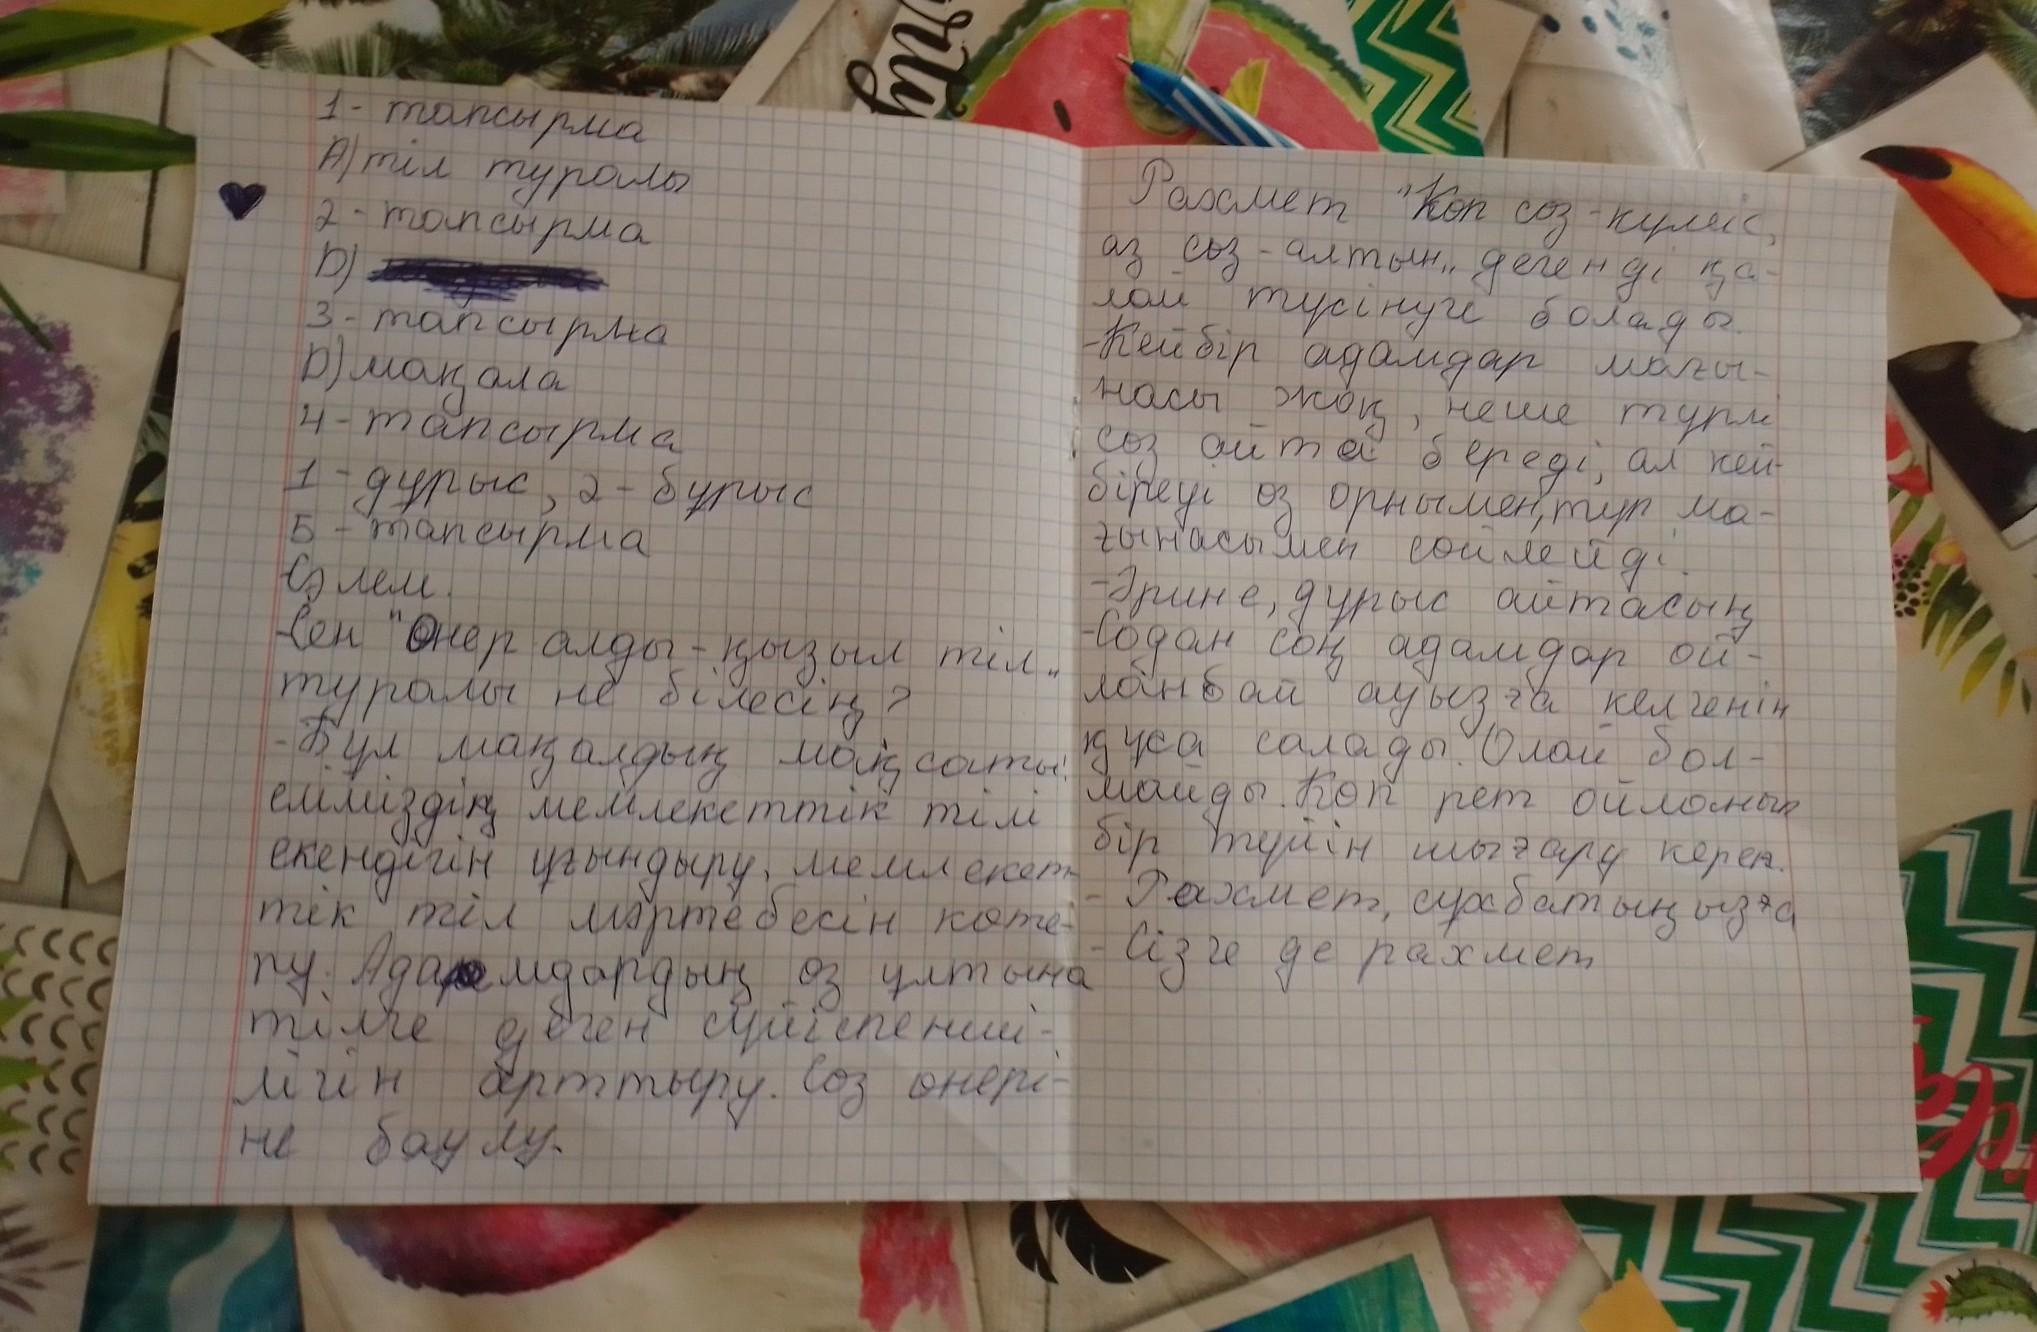 1 - тапсырма
А) тіл туралы
2 - тапсырма
D)
3 - тапсырма
D) мақала
4 - тапсырма
1 - дұрыс, 2 - бұрыс
5 - тапсырма
Сәлем.
-Сен "Өнер алды - қызыл тіл"
туралы не білесің?
- Бұл мақалдың мақсаты:
еліміздің мемлекеттік тілі
екендігін ұғындыру, мемлекет-
тік тіл мәртебесін көте-
ру. Адамдардың өз ұлтына
тілге деген сүйіспенші-
лігін арттыру. Сөз өнері-
не баулу.
Рахмет "Көп сөз - күміс,
аз сөз - алтын" дегенді қа-
лай түсінуге болады.
-Кейбір адамдар мағы-
насы жоқ, неше түрлі
сөз айта береді, ал кей-
біреуі өз орнымен, тұр ма-
ғынасымен сөйлейді.
-Әрине, дұрыс айтасың
-Содан соң адамдар ой-
ланбай ауызға келгенін
құса салады. Олай бол-
майды. Көп рет ойланып
бір түйін шығару керек.
- Рахмет, сұхбатыңызға
- Сізге де рахмет